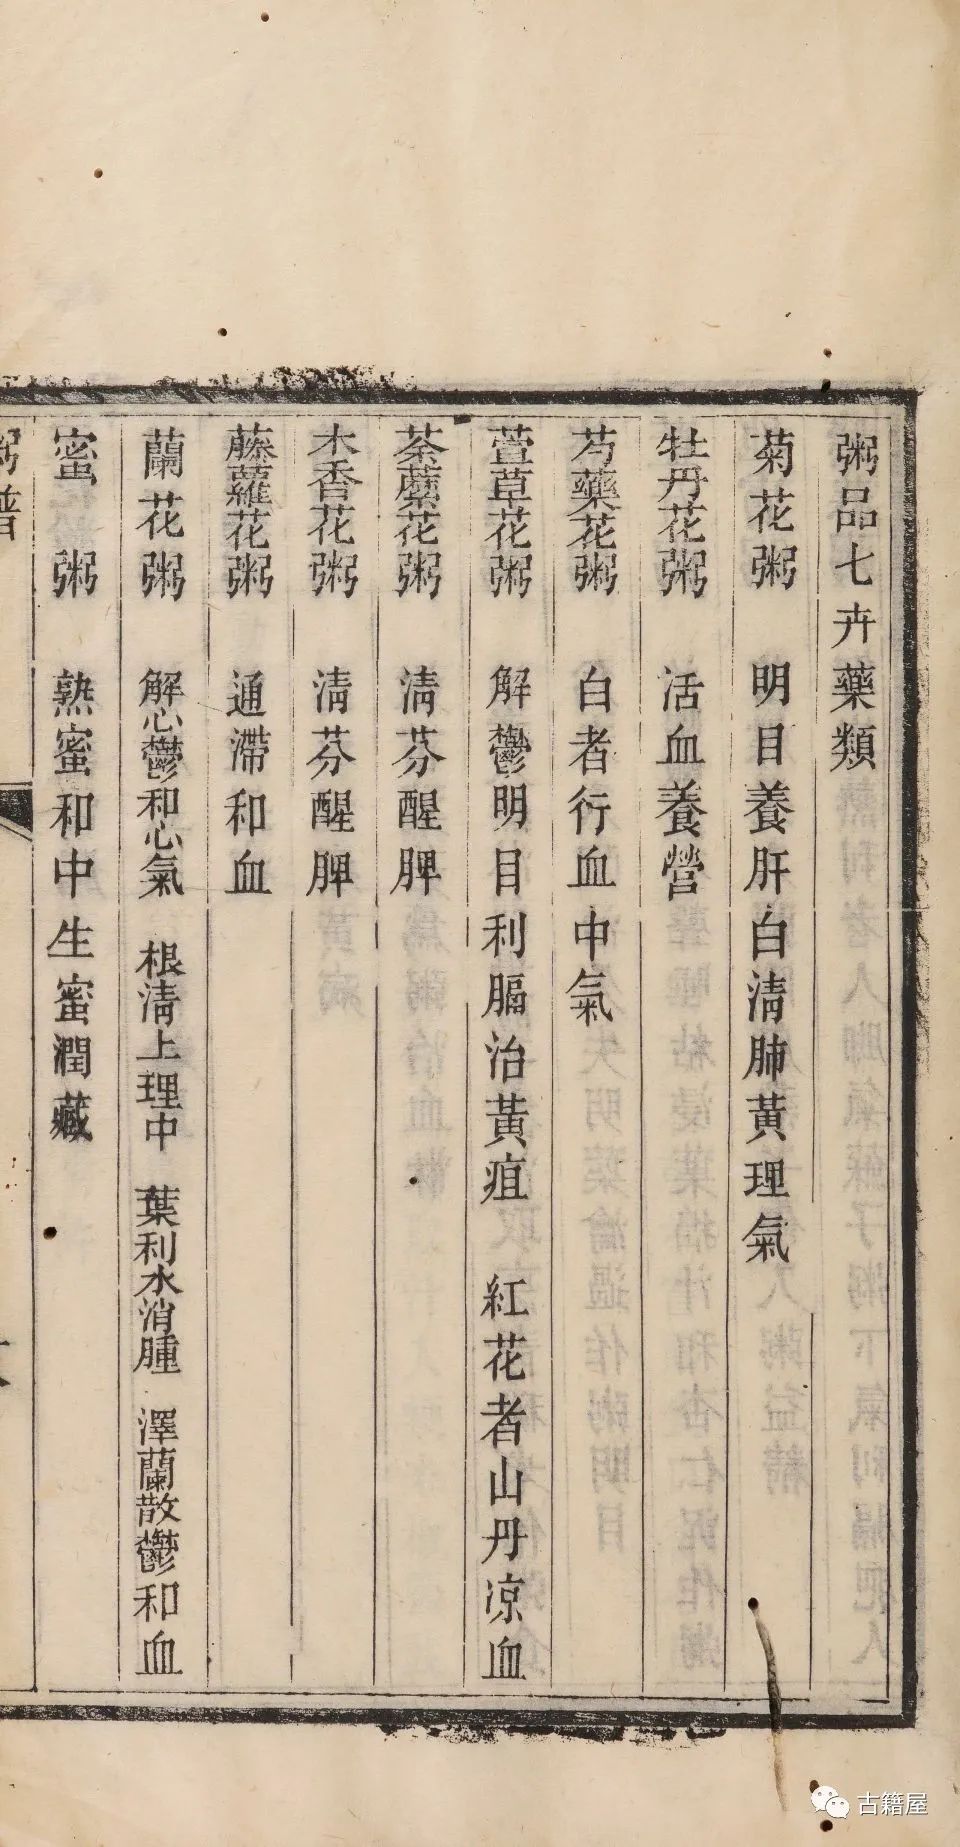 粥品七卉藥類
菊花粥　明目養肝白淸肺黃理氣
牡丹花粥　活血養營
芍藥花粥　白者行血中氣
萱草花粥　解鬱明目利膈治黃疸　紅花者山丹凉血
荼蘼花粥　淸芬醒脾
木香花粥　淸芬醒脾
藤蘿花粥　通滯和血
蘭花粥　解心鬱和心氣　根淸上理中　葉利水消腫　澤蘭散鬱和血
蜜粥　熟蜜和中生蜜潤藏
粥譜
古籍屋